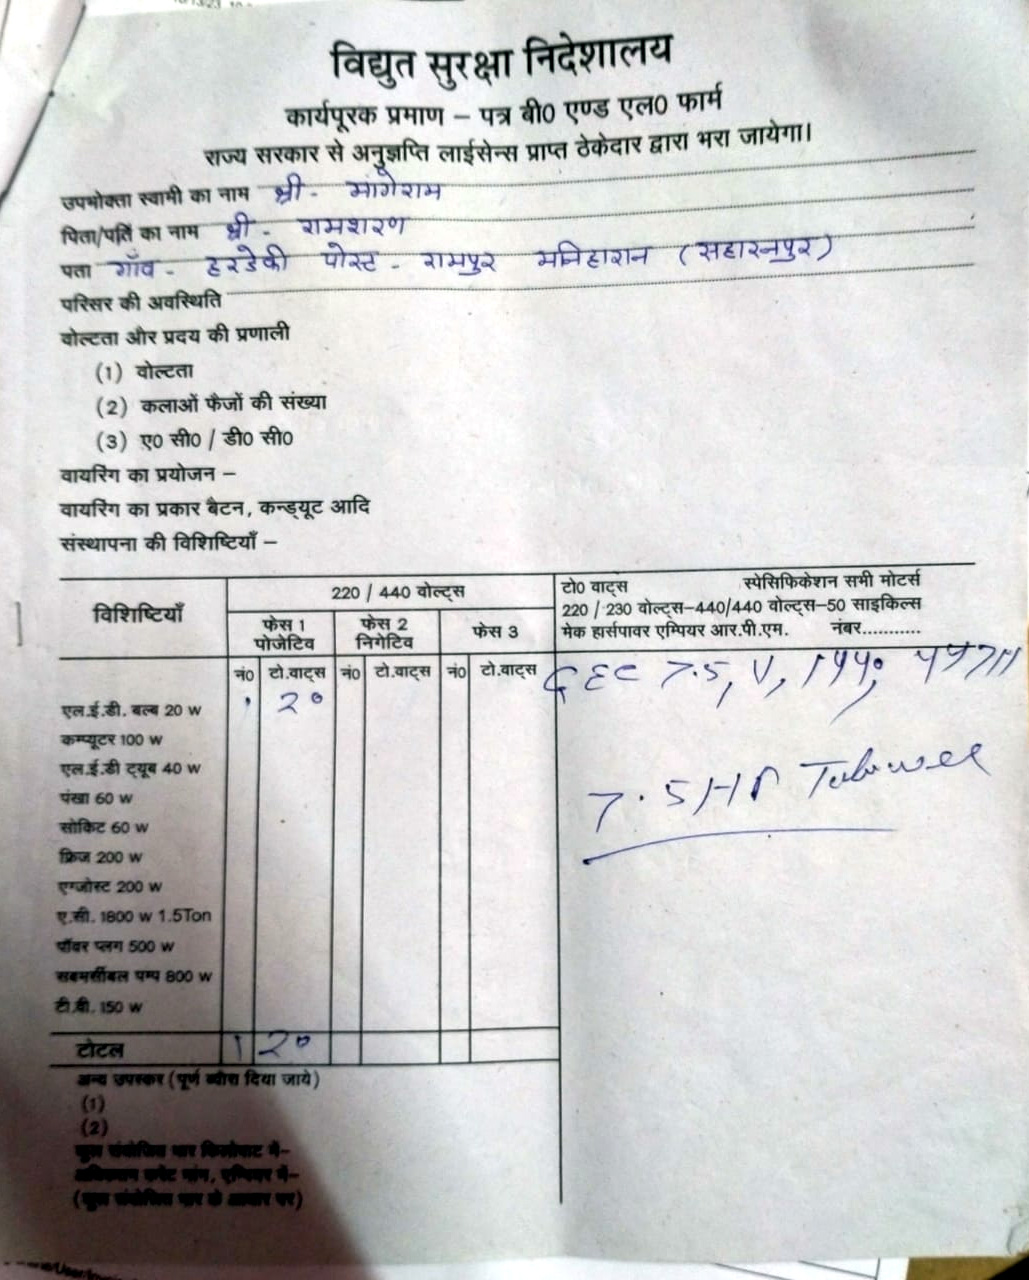 विद्युत सुरक्षा निदेशालय
कार्यपूरक प्रमाण – पत्र बी0 एण्ड एल0 फार्म
राज्य सरकार से अनुज्ञप्ति लाईसेन्स प्राप्त ठेकेदार द्वारा भरा जायेगा।
उपभोक्ता स्वामी का नाम श्री - मांगेराम
पिता/पति का नाम श्री - रामशरण
पता गाँव - हरडेकी पोस्ट - रामपुर मनिहारान (सहारनपुर)
परिसर की अवस्थिति
वोल्टता और प्रदय की प्रणाली
(1) वोल्टता
(2) कलाओं फैजों की संख्या
(3) ए0 सी0 / डी0 सी0
वायरिंग का प्रयोजन –
वायरिंग का प्रकार बैटन, कन्ड्यूट आदि
संस्थापना की विशिष्टियाँ –
विशिष्टियाँ 220 / 440 वोल्ट्स टो0 वाट्स स्पेसिफिकेशन सभी मोटर्स
220 / 230 वोल्ट्स–440/440 वोल्ट्स–50 साइकिल्स
फेस 1 पोजेटिव फेस 2 निगेटिव फेस 3 मेक हार्सपावर एम्पियर आर.पी.एम. नंबर...........
नं0 टो.वाट्स नं0 टो.वाट्स नं0 टो.वाट्स GEC 7.5,
एल.ई.डी. बल्ब 20 w 1 20
कम्प्यूटर 100 w
एल.ई.डी ट्यूब 40 w
7.5 HP Tubewell
पंखा 60 w
सोकिट 60 w
फ्रिज 200 w
एग्जोस्ट 200 w
ए.सी. 1800 w 1.5Ton
पॉवर प्लग 500 w
सबमर्सीबल पम्प 800 w
टी.वी. 150 w
टोटल 1 20
अन्य उपस्कर (पूर्ण ब्यौरा दिया जाये)
(1)
(2)
कुल संयोजित भार किलोवाट में–
अधिकतम करेंट मांग, एम्पियर में–
(कुल संयोजित भार के आधार पर)